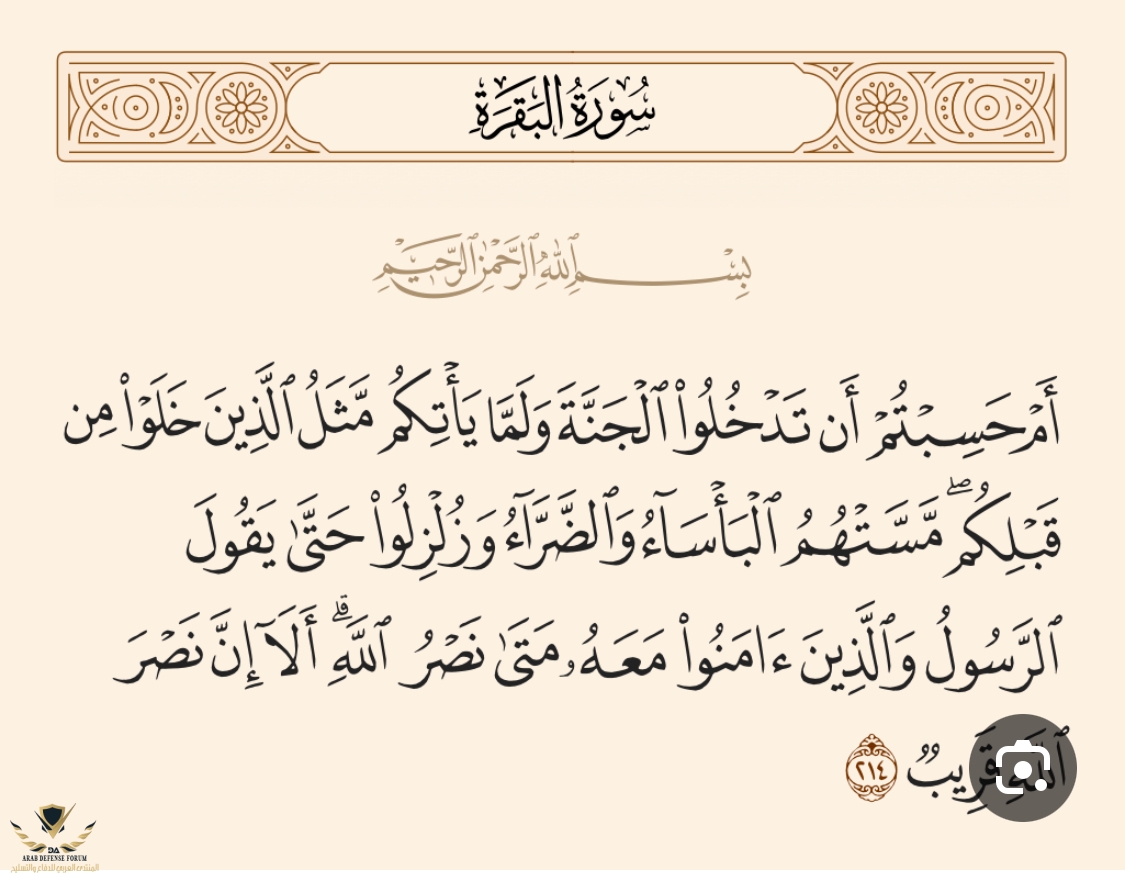 سُورَةُ البَقَرَةِ
بِسْمِ ٱللَّهِ ٱلرَّحْمَٰنِ ٱلرَّحِيمِ
أَمْ حَسِبْتُمْ أَن تَدْخُلُوا۟ ٱلْجَنَّةَ وَلَمَّا يَأْتِكُم مَّثَلُ ٱلَّذِينَ خَلَوْا۟ مِن
قَبْلِكُم ۖ مَّسَّتْهُمُ ٱلْبَأْسَآءُ وَٱلضَّرَّآءُ وَزُلْزِلُوا۟ حَتَّىٰ يَقُولَ
ٱلرَّسُولُ وَٱلَّذِينَ ءَامَنُوا۟ مَعَهُۥ مَتَىٰ نَصْرُ ٱللَّهِ ۗ أَلَآ إِنَّ نَصْرَ
ٱللَّهِ قَرِيبٌ ٢١٤
DA
ARAB DEFENSE FORUM
المنتدى العربي للدفاع والتسليح